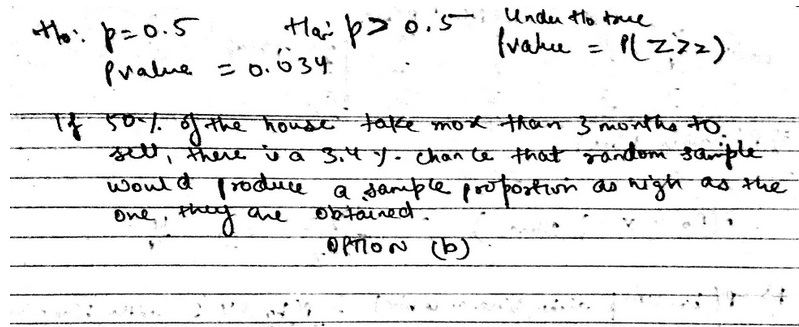 H₀: p=0.5 Ha: p> 0.5 Under H₀ true
Pvalue = 0.034 Pvalue = P(Z>z)
If 50% of the house take more than 3 months to
sell, there is a 3.4%. chance that random sample
would produce a sample proportion as high as the
one, they are obtained.
OPTION (b)